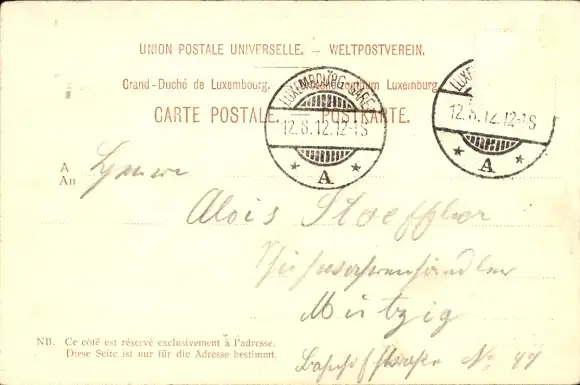 UNION POSTALE UNIVERSELLE. — WELTPOSTVEREIN.
Grand-Duché de Luxembourg. Luxemburg.
CARTE POSTALE. — POSTKARTE.
LUXEMBOURG-GARE
12.8.12.12-1S
A
LUX
12.8.12.12-1S
A
A
An
Alois Stoeffler
Mutzig
Bahnhofstrasse No 44
NB. Ce côté est réservé exclusivement à l'adresse.
Diese Seite ist nur für die Adresse bestimmt.